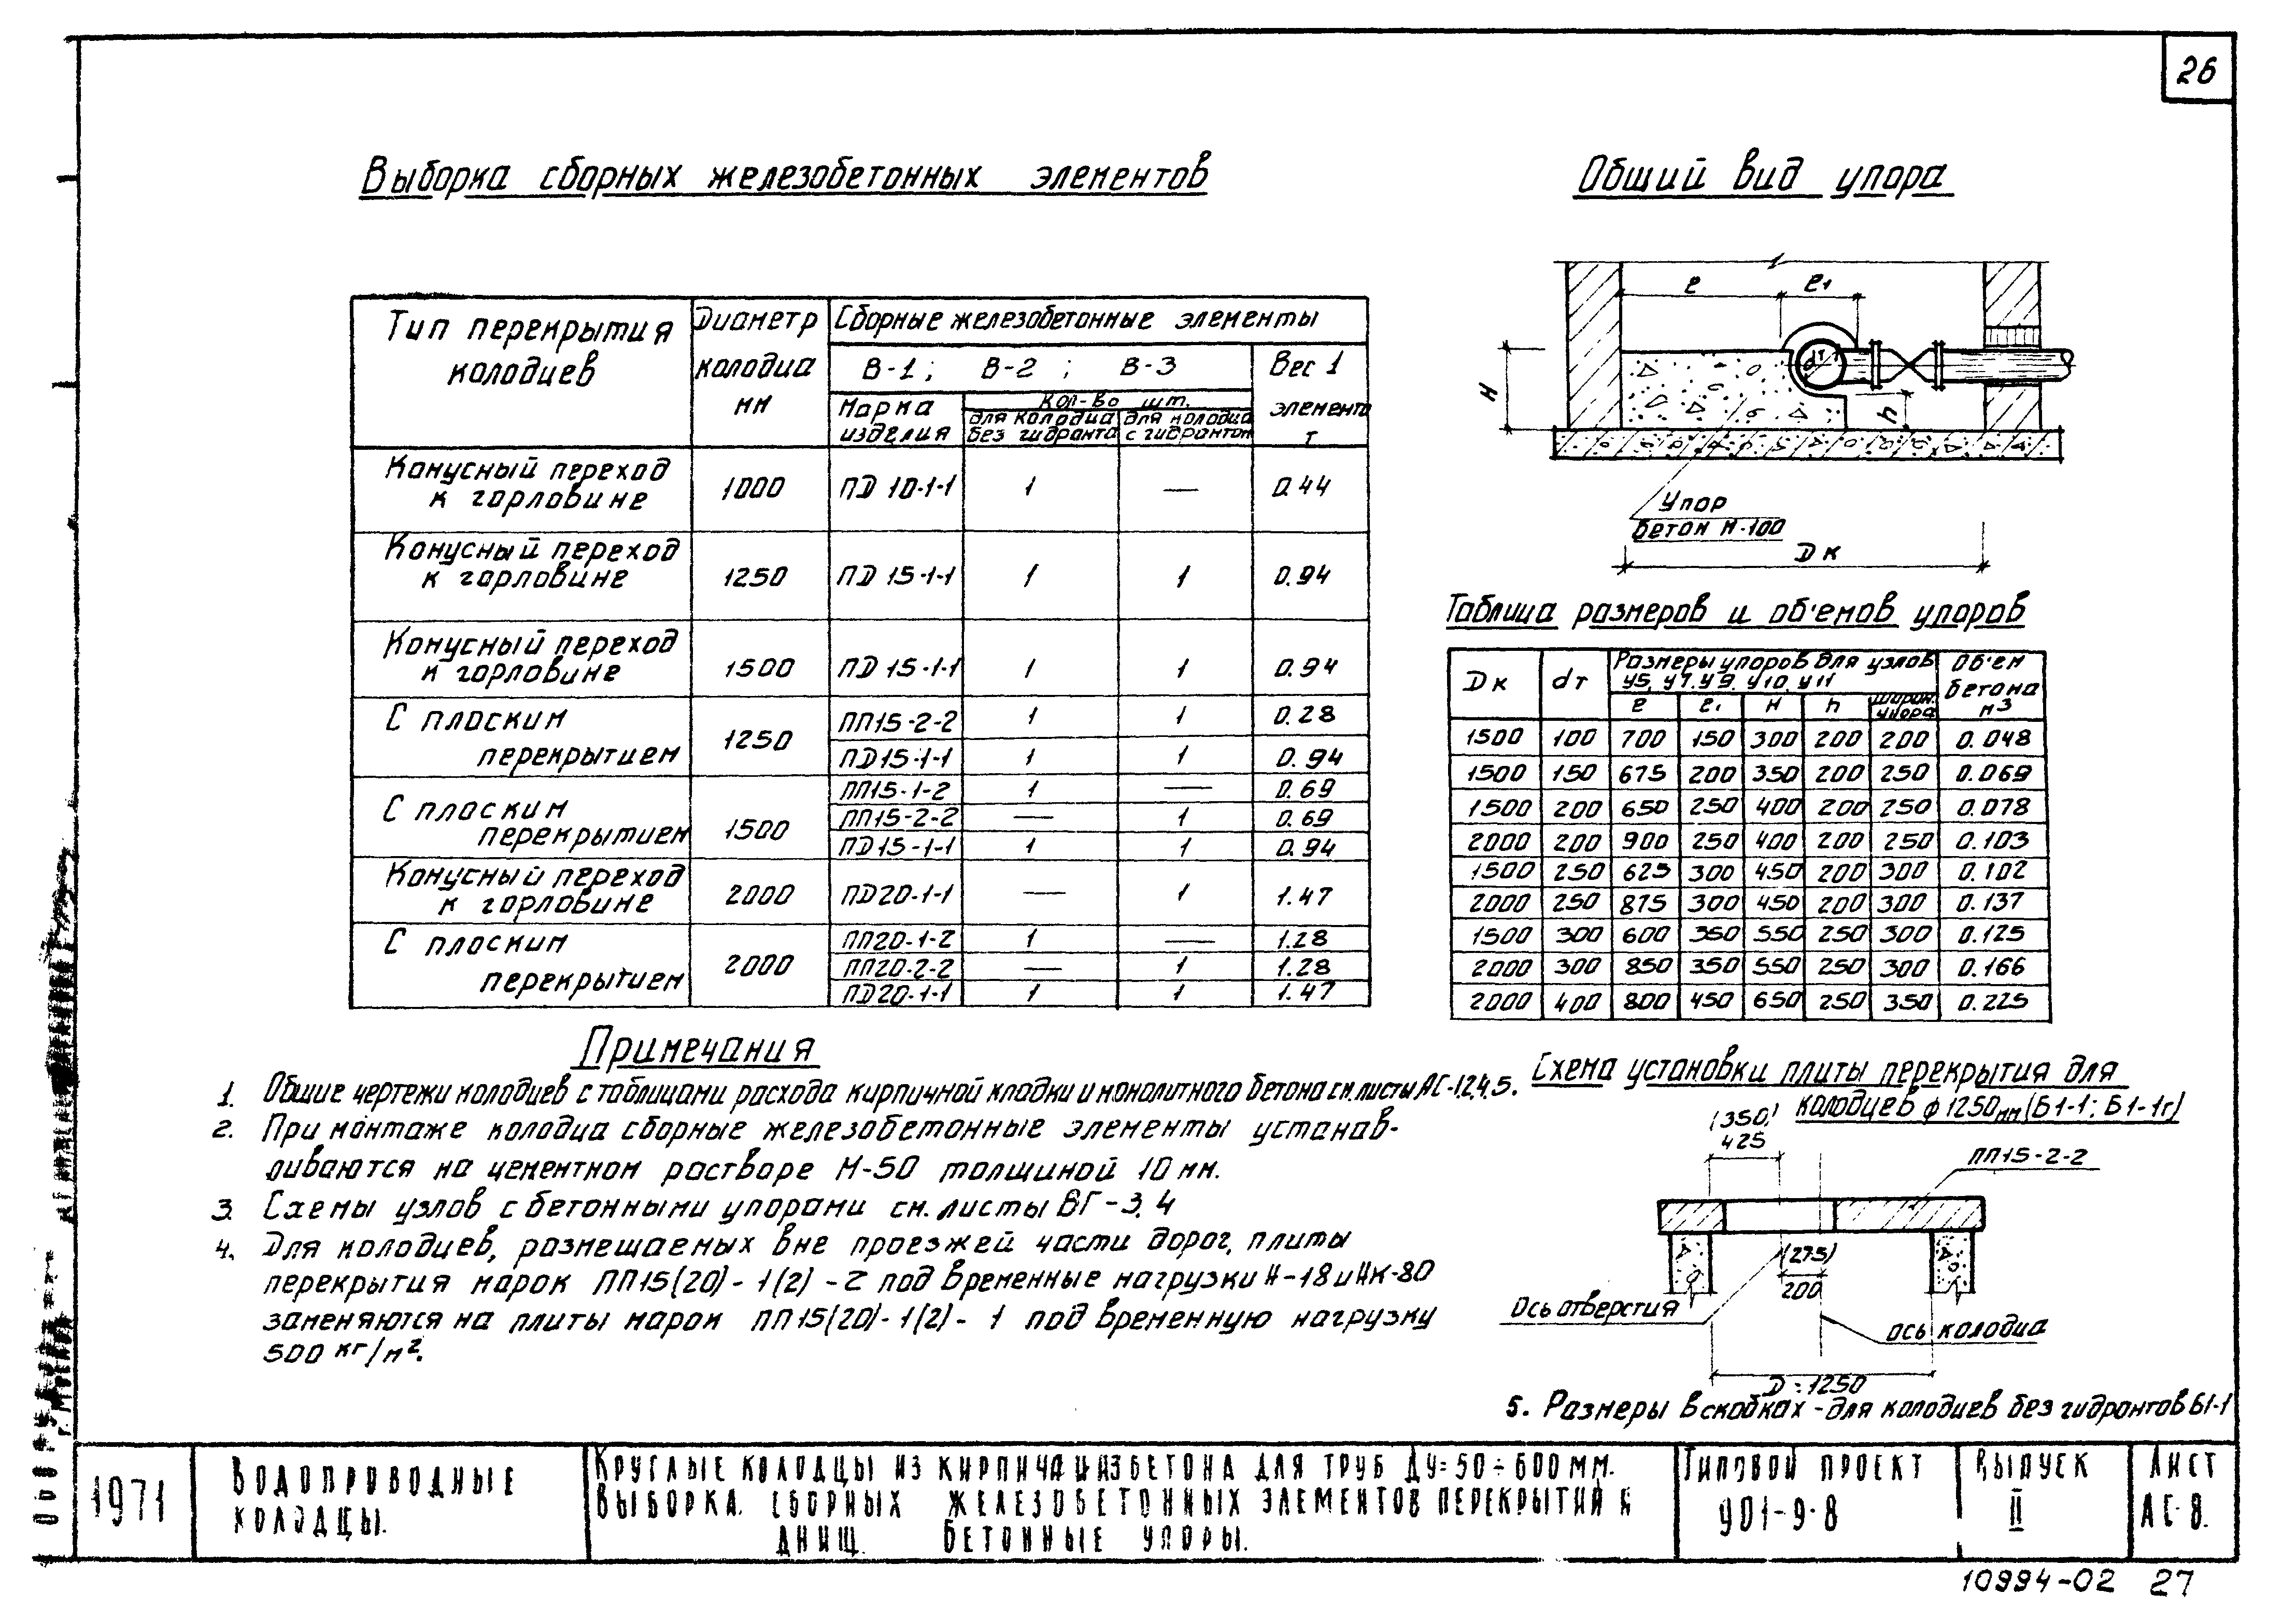 26
Выборка сборных железобетонных элементов
Тип перекрытия колодцев | Диаметр колодца мм | Сборные железобетонные элементы
В-1; В-2; В-3 | Вес 1 элемента т
Марка изделия | Кол-во шт.
для колодца без гидранта | для колодца с гидрантом
Конусный переход к горловине | 1000 | ПД 10-1-1 | 1 | — | 0.44
Конусный переход к горловине | 1250 | ПД 15-1-1 | 1 | 1 | 0.94
Конусный переход к горловине | 1500 | ПД 15-1-1 | 1 | 1 | 0.94
С плоским перекрытием | 1250 | ПП15-2-2 | 1 | 1 | 0.28
ПД15-1-1 | 1 | 1 | 0.94
С плоским перекрытием | 1500 | ПП15-1-2 | 1 | — | 0.69
ПП15-2-2 | — | 1 | 0.69
ПД15-1-1 | 1 | 1 | 0.94
Конусный переход к горловине | 2000 | ПД20-1-1 | — | 1 | 1.47
С плоским перекрытием | 2000 | ПП20-1-2 | 1 | — | 1.28
ПП20-2-2 | — | 1 | 1.28
ПД20-1-1 | 1 | 1 | 1.47
Примечания
1. Общие чертежи колодцев с таблицами расхода кирпичной кладки и монолитного бетона см. листы АС-1,2,4,5.
2. При монтаже колодца сборные железобетонные элементы устанав-
ливаются на цементном растворе М-50 толщиной 10 мм.
3. Схемы узлов с бетонными упорами см. листы ВГ-3,4
4. Для колодцев, размещаемых вне проезжей части дорог, плиты
перекрытия марок ПП15(20)-1(2)-2 под временные нагрузки Н-18 и НК-80
заменяются на плиты марок ПП15(20)-1(2)-1 под временную нагрузку
500 кг/м².
Общий вид упора
ℓ ℓ1
dт
H
h
Упор
бетон М-100
Dк
Таблица размеров и об'емов упоров
Dк | dт | Размеры упоров для узлов У5, У7, У9, У10, У11 | Об'ем бетона м3
ℓ | ℓ1 | H | h | ширин. упора
1500 | 100 | 700 | 150 | 300 | 200 | 200 | 0.048
1500 | 150 | 675 | 200 | 350 | 200 | 250 | 0.069
1500 | 200 | 650 | 250 | 400 | 200 | 250 | 0.078
2000 | 200 | 900 | 250 | 400 | 200 | 250 | 0.103
1500 | 250 | 625 | 300 | 450 | 200 | 300 | 0.102
2000 | 250 | 875 | 300 | 450 | 200 | 300 | 0.137
1500 | 300 | 600 | 350 | 550 | 250 | 300 | 0.125
2000 | 300 | 850 | 350 | 550 | 250 | 300 | 0.166
2000 | 400 | 800 | 450 | 650 | 250 | 350 | 0.225
Схема установки плиты перекрытия для
колодцев ф 1250мм (Б1-1; Б1-1г)
(350)
425
ПП15-2-2
(275)
200
Ось отверстия
ось колодца
D=1250
5. Размеры в скобках - для колодцев без гидрантов Б1-1
г. Москва
1971
Водопроводные
колодцы.
Круглые колодцы из кирпича и из бетона для труб Ду=50÷600мм.
Выборка сборных железобетонных элементов перекрытий и
днищ. Бетонные упоры.
Типовой проект
901-9-8
Выпуск
II
Лист
АС-8.
10994-02 27